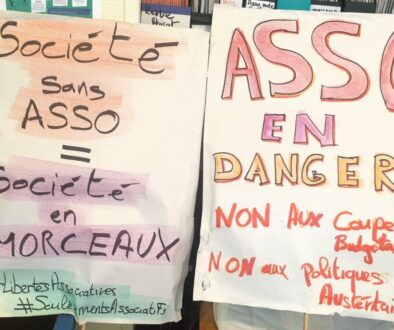 Société
sans
ASSO
=
Société
en
MORCEAUX
#LibertésAssociatives
#SoulèvementsAssociatifs
ASSO
EN
DANGER
NON AUX Coupe
Budgéta
NON aux Politiques
Austéritai